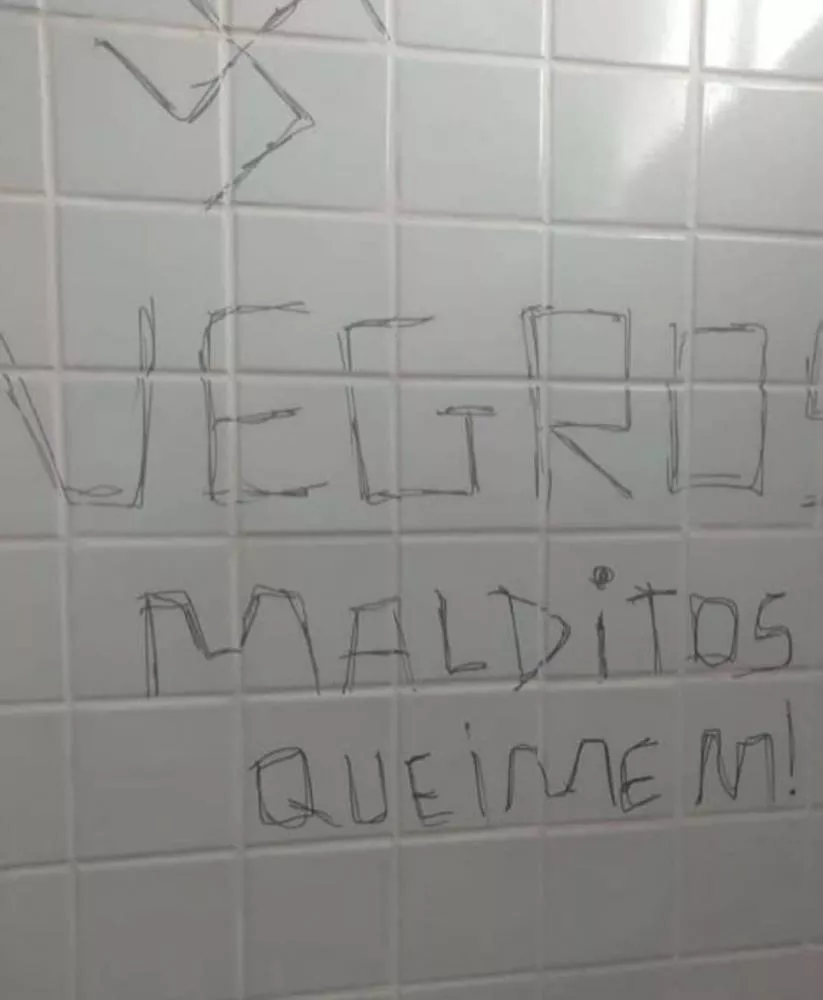 NEGROS
MALDiTOS
QUEiMEM!